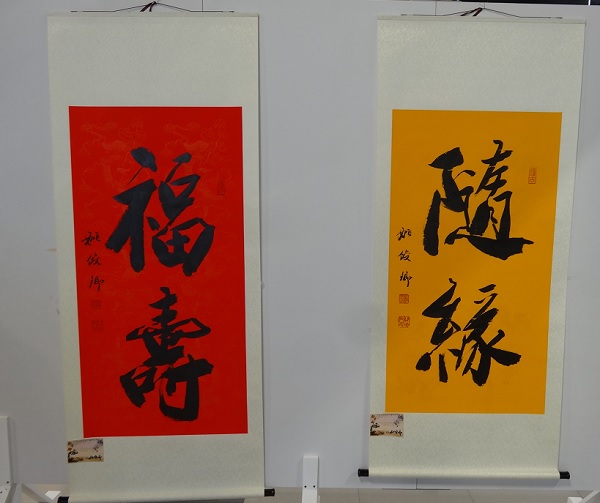 福壽
姚俊卿
隨緣
姚俊卿